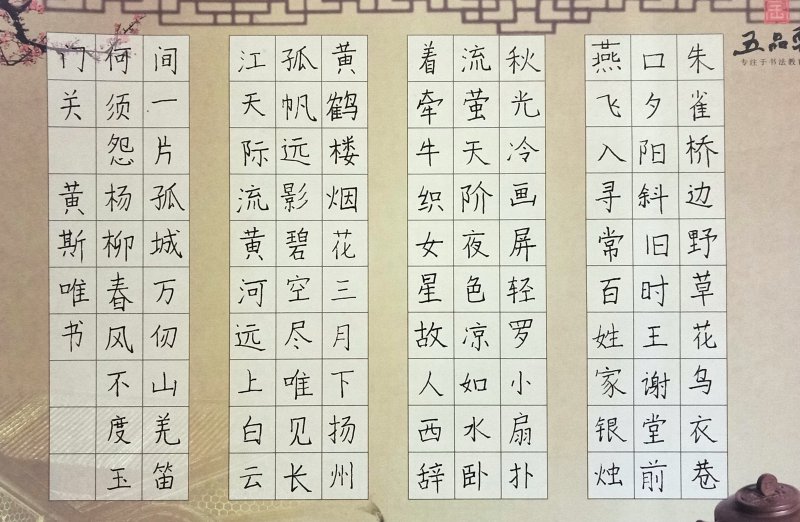 五品
专注于书法教
朱雀桥边野草花鸟衣巷
口夕阳斜旧时王谢堂前
燕飞入寻常百姓家银烛
秋光冷画屏轻罗小扇扑
流萤天阶夜色凉如水卧
着牵牛织女星故人西辞
黄鹤楼烟花三月下扬州
孤帆远影碧空尽唯见长
江天际流黄河远上白云
间一片孤城万仞山羌笛
何须怨杨柳春风不度玉
门关 黄斯唯书